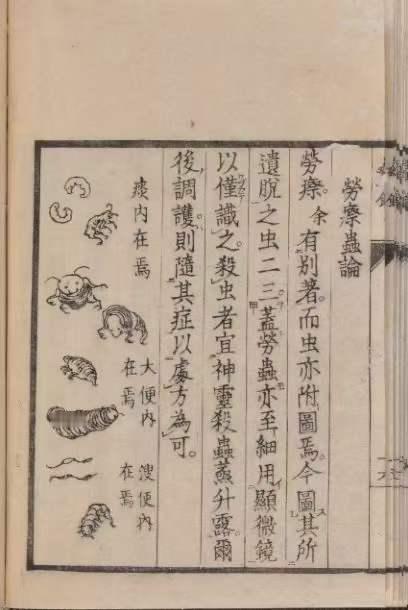 勞瘵蟲論
勞瘵。余有別著。而虫亦附圖焉。今圖其所
遺脫之虫二三。蓋勞蟲亦至細用顯微鏡
以僅識之。殺虫者宜神靈殺蟲蒸升露。爾
後調護。則隨其症以處方為可。
痰内在焉
大便内
在焉
溲便内
在焉